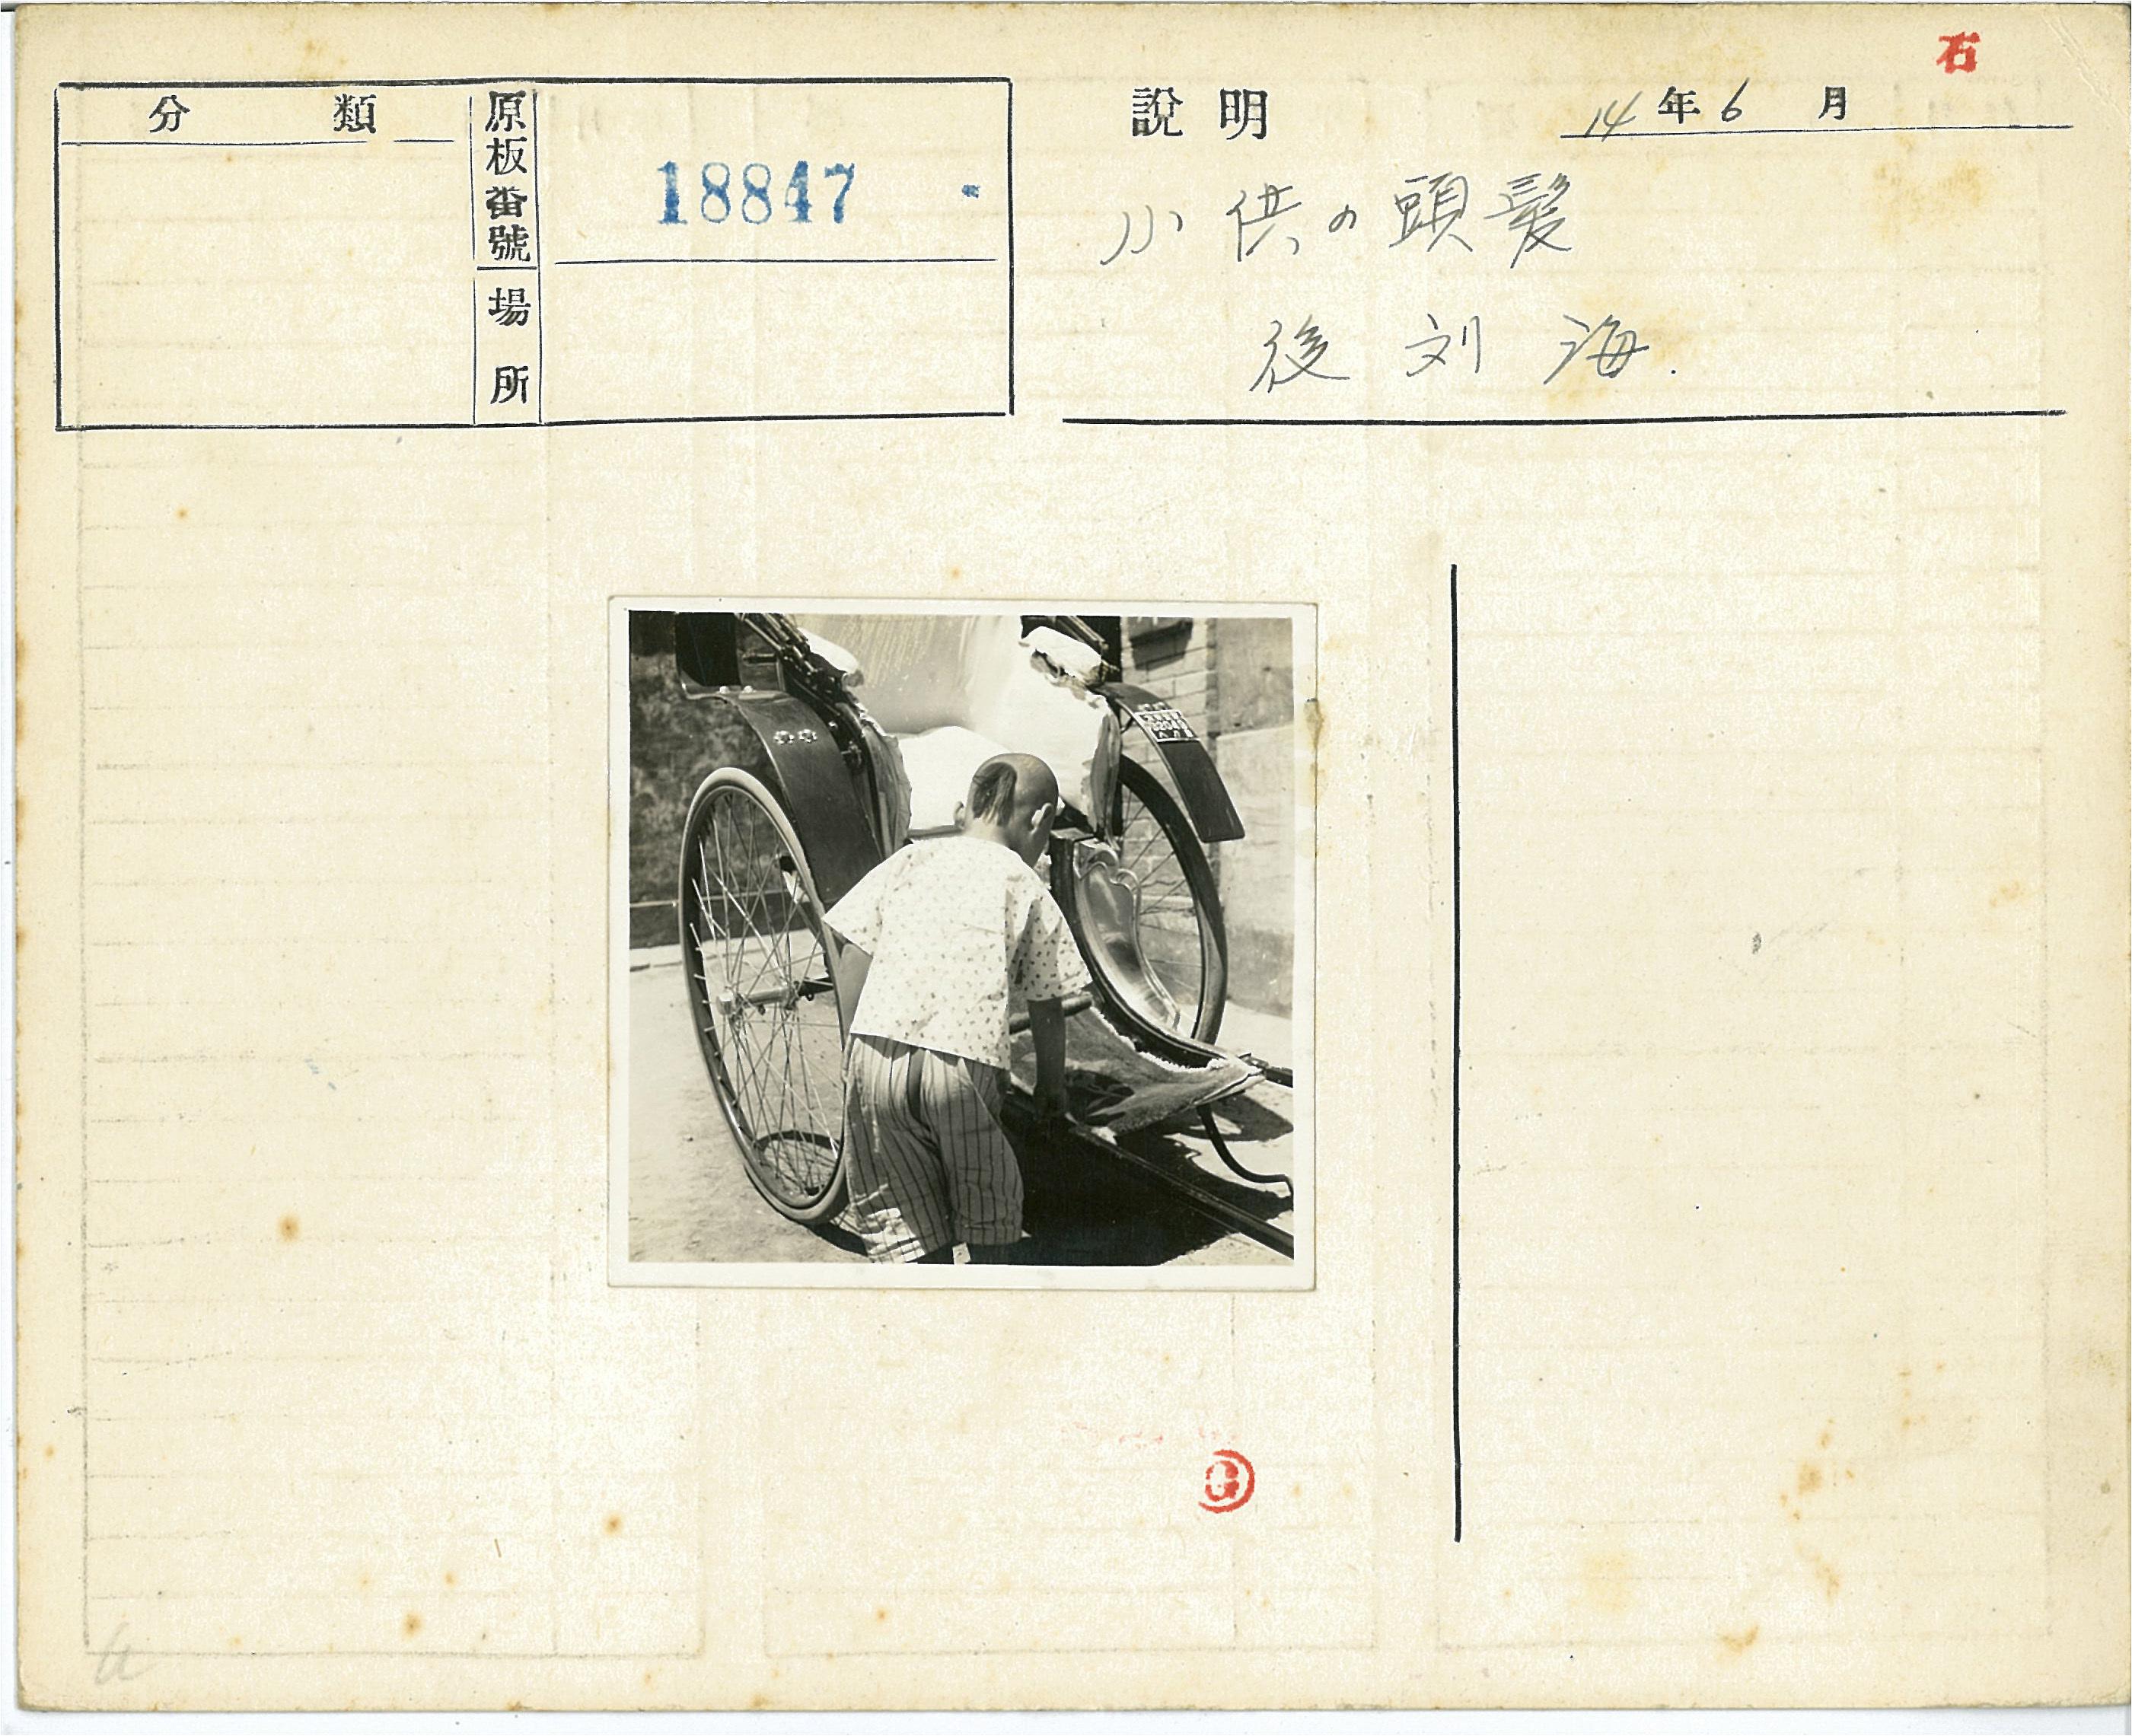 石
分類
原板番號
18847
場所
説明
14年6月
小供の頭髪
後刘海.